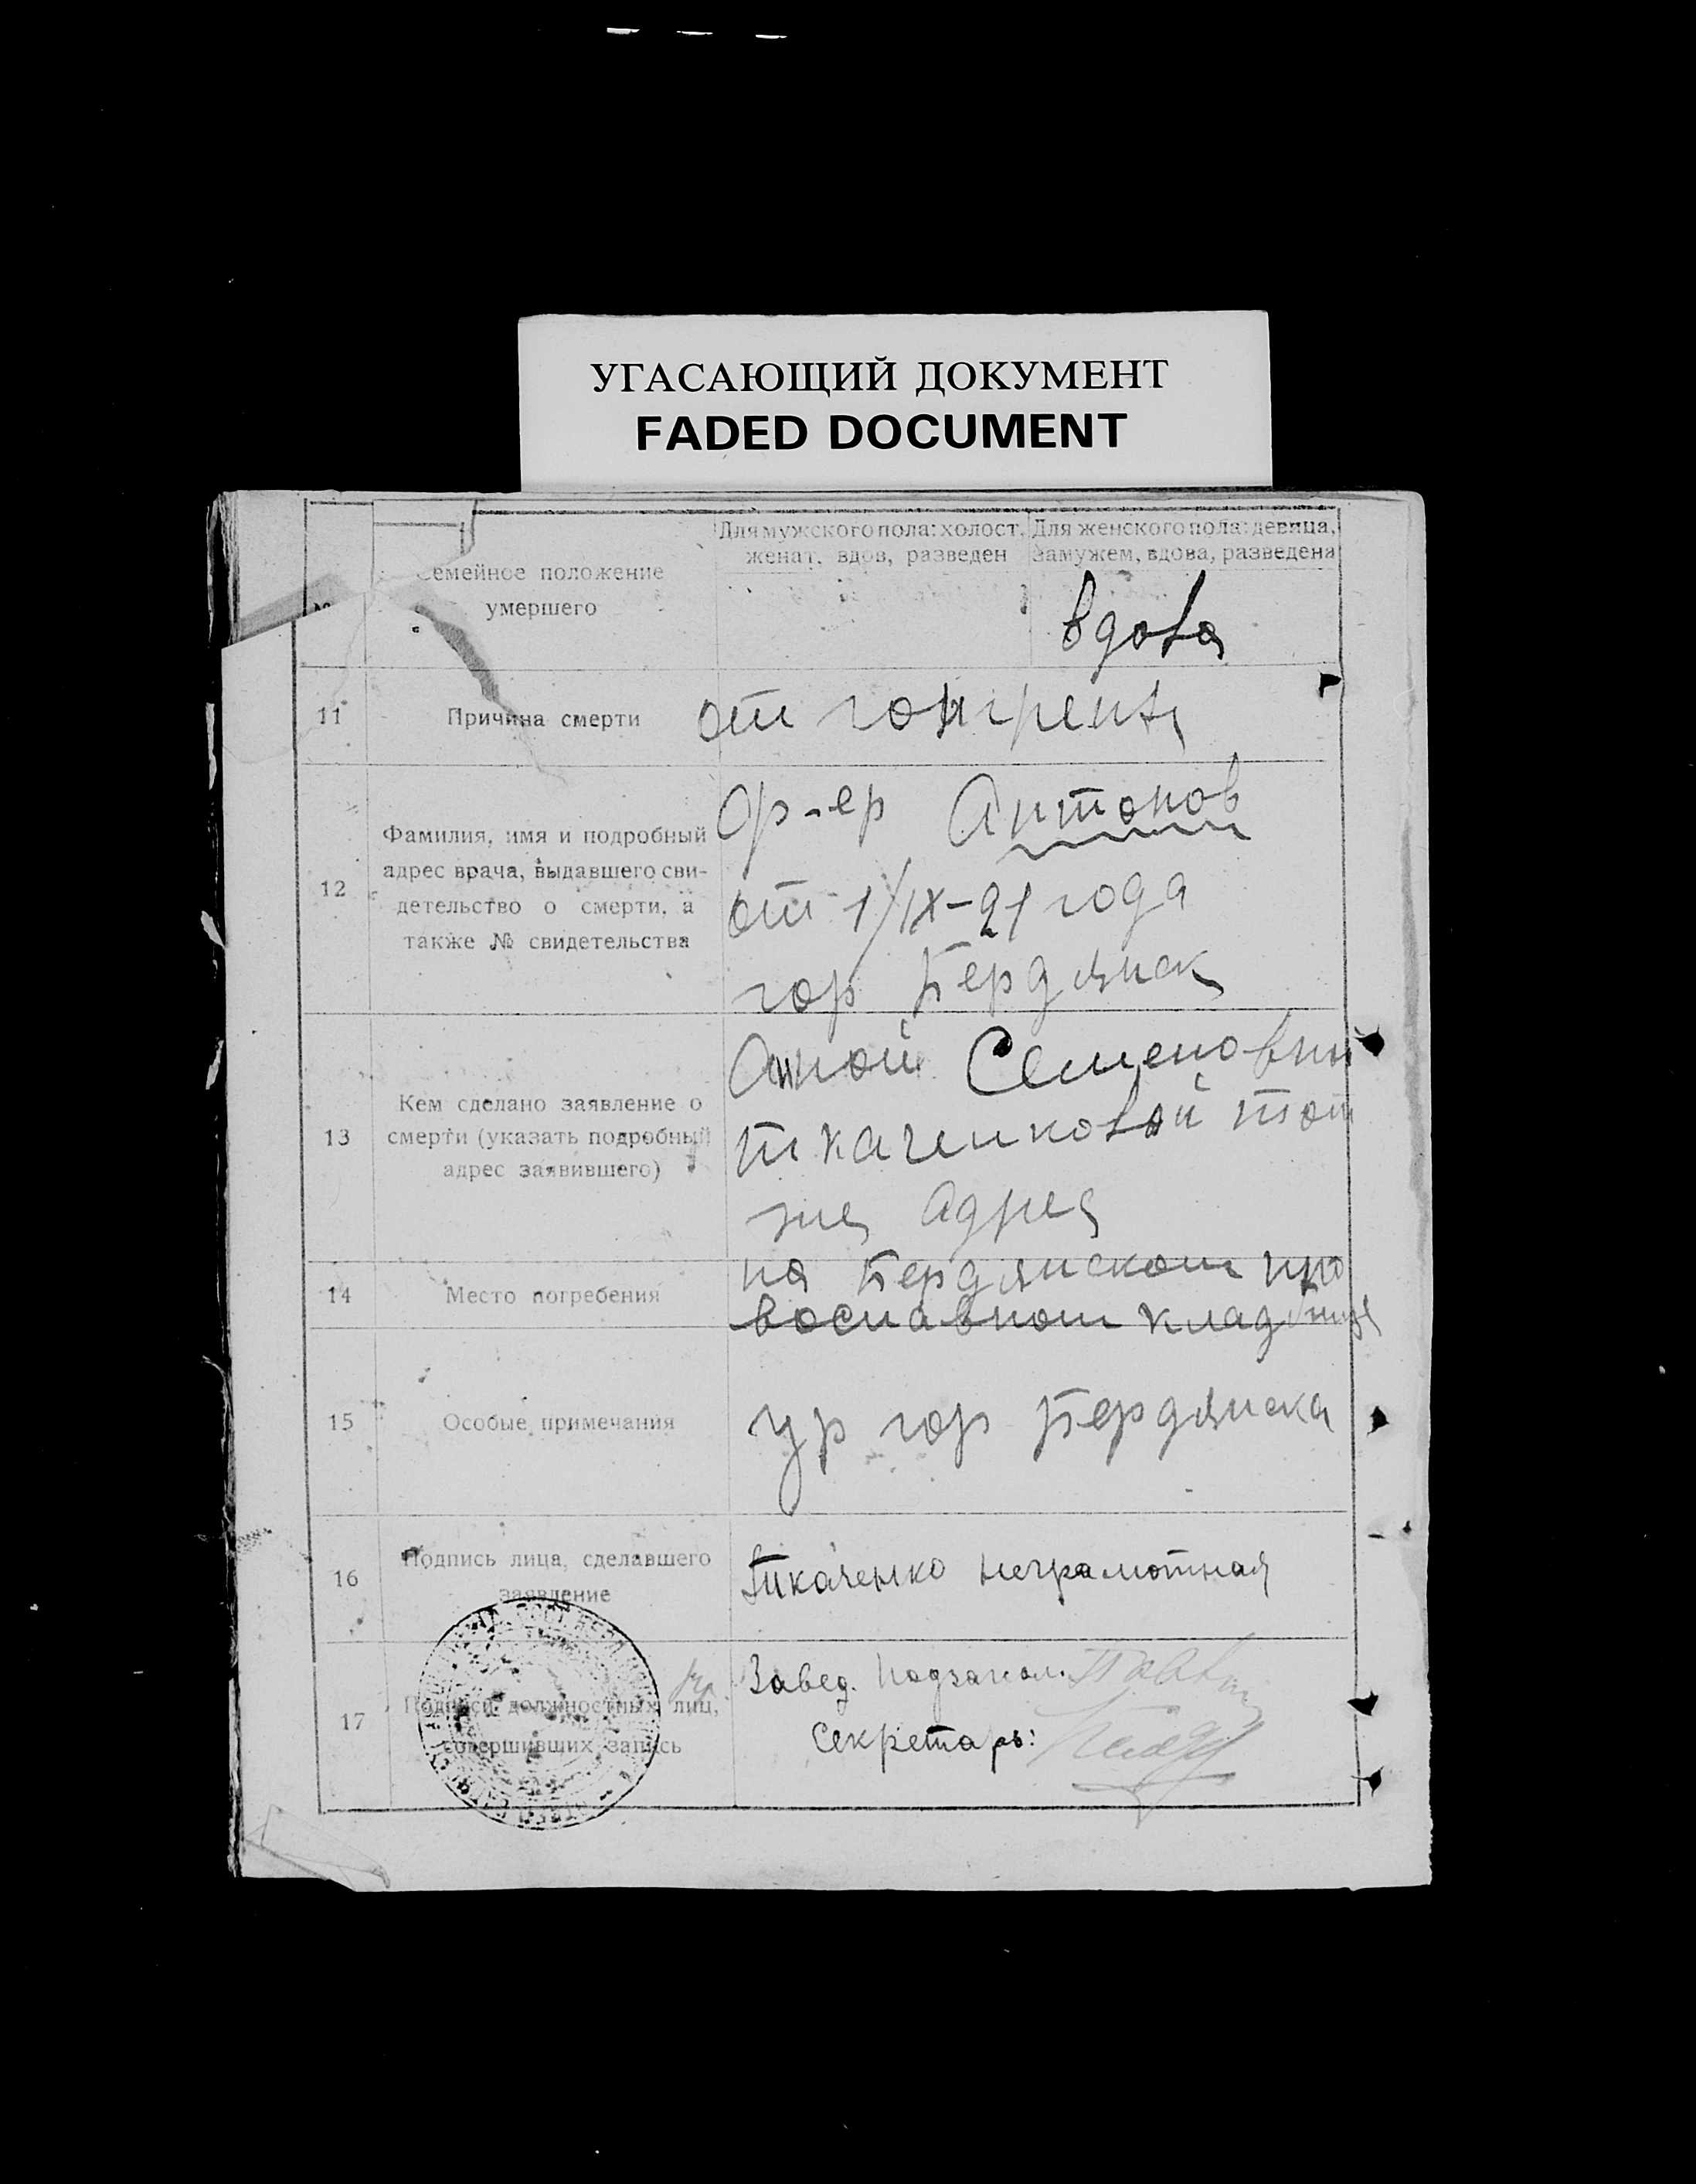 УГАСАЮЩИЙ ДОКУМЕНТ
FADED DOCUMENT
Семейное положение
умершего
Для мужского пола: холост,
женат, вдов, разведен
Для женского пола: девица,
замужем, вдова, разведена
вдова
11
Причина смерти
от гонгрены
12
Фамилия, имя и подробный
адрес врача, выдавшего сви-
детельство о смерти, а
также № свидетельства
Фр-ер Антонов
от 1/IX-21 года
гор Бердянск
13
Кем сделано заявление о
смерти (указать подробный
адрес заявившего)
Аной Семеновны
Ткаченковой тот
же адрес
14
Место погребения
на Бердянском пра
вославном кладбище
15
Особые примечания
ур гор Бердянска
16
Подпись лица, сделавшего
заявление
Ткаченко неграмотная
17
Подписи должностных лиц,
совершивших запись
Завед. Подзагсом.
Секретарь: